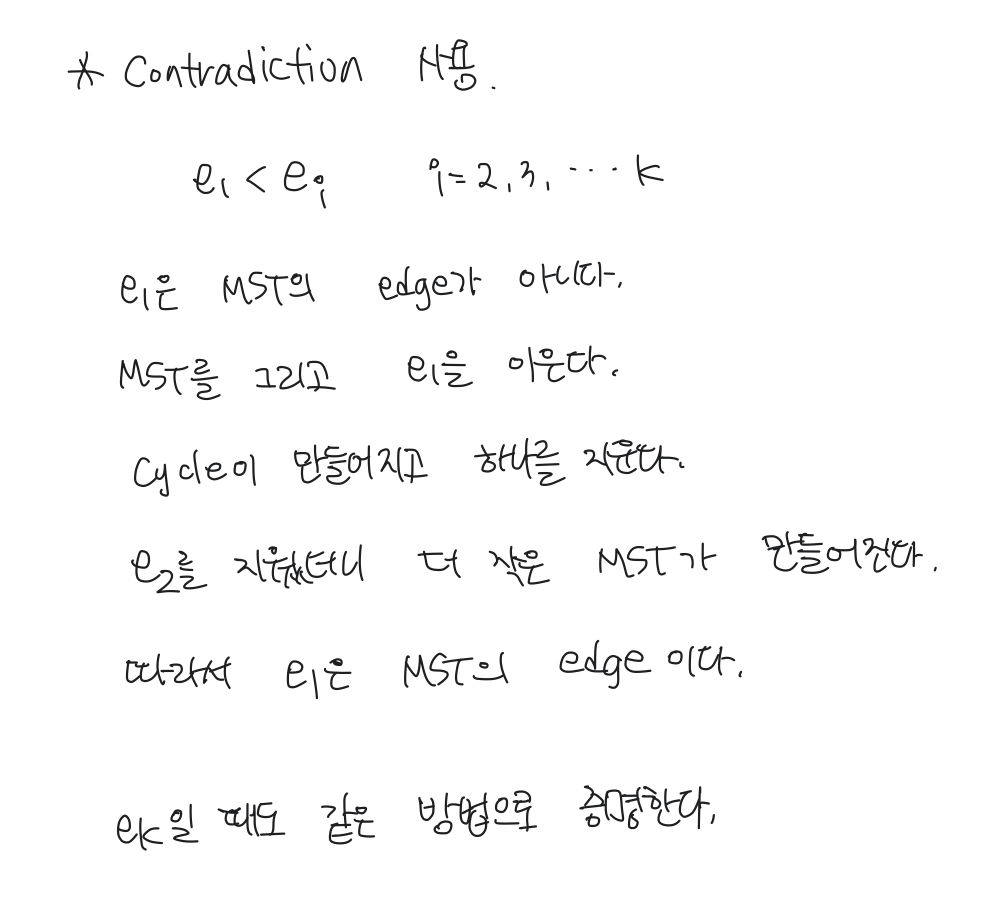 * Contradiction 사용.
e₁ < eᵢ i = 2, 3, ... k
e₁은 MST의 edge가 아니다.
MST를 그리고 e₁을 이은다.
Cycle이 만들어지고 하나를 지운다.
e₂를 지웠더니 더 작은 MST가 만들어진다.
따라서 e₁은 MST의 edge이다.
eₖ일 때도 같은 방법으로 증명한다.